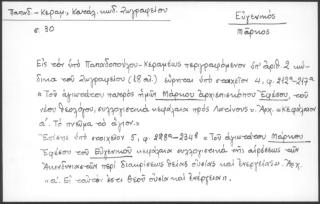 Παπαδ.-Κεραμ., Κατάλ. κωδ. Ζωγραφείου
Εὐγενικός
Μᾶρκος
σ. 30
Εἰς τὸν ὑπὸ Παπαδοπούλου-Κεραμέως περιγραφόμενον ὑπ' ἀριθ. 2 κώδικα τοῦ Ζωγραφείου (18 αἰ.) εὕρηται ὑπὸ στοιχεῖον 4, φ. 212α-217α
« Τοῦ ἁγιωτάτου πατρὸς ἡμῶν Μάρκου ἀρχιεπισκόπου Ἐφέσου, τοῦ
νέου θεολόγου, συλλογιστικὰ κεφάλαια πρὸς Λατίνους ». Ἀρχ. « Κεφάλαιον
α´. Τὸ πνεῦμα τὸ ἅγιον ».
Ἐπίσης ὑπὸ στοιχεῖον 5, φ. 228α-234α « Τοῦ ἁγιωτάτου Μάρκου
Ἐφέσου τοῦ Εὐγενικοῦ κεφάλαια συλλογιστικὰ τῆς αἱρέσεως τῶν
Ἀκινδυνιαστῶν περὶ διακρίσεως θείας οὐσίας καὶ ἐνεργείας ». Ἀρχ.
« α´. Εἰ ταὐτόν ἐστι θεοῦ οὐσία καὶ ἐνέργεια ».